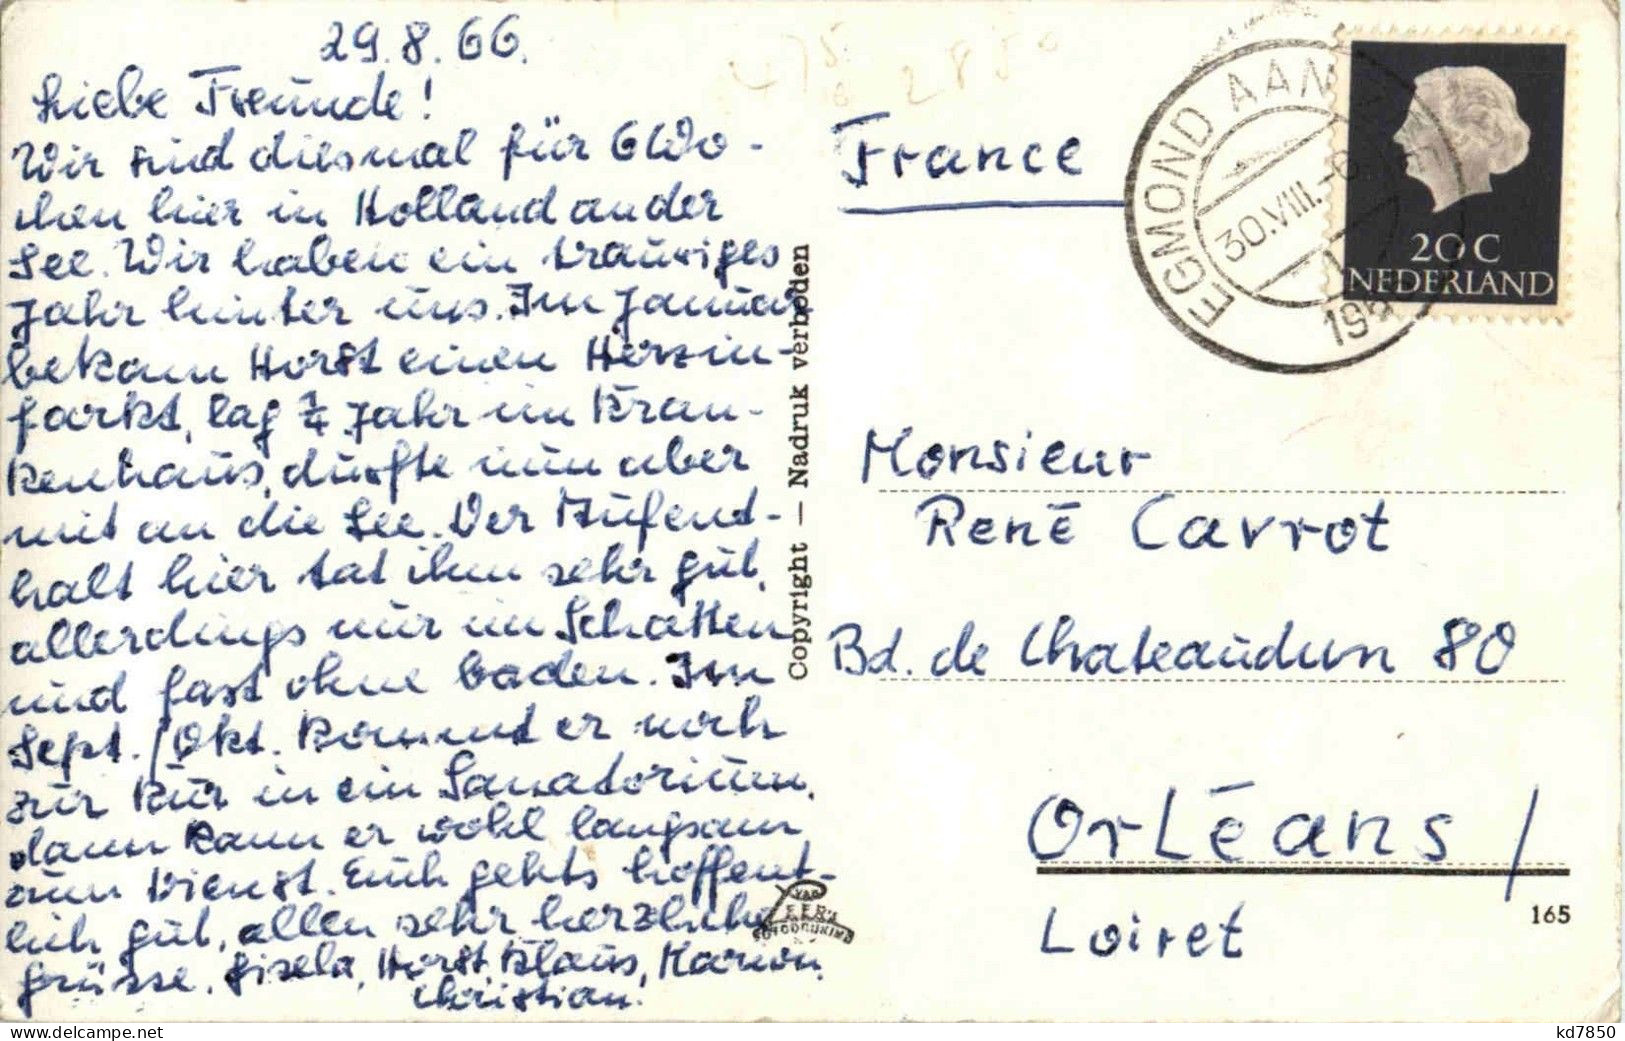 29.8.66.
Liebe Freunde!
Wir sind diesmal für 6 Wo-
chen hier in Holland an der
See. Wir haben ein trauriges
Jahr hinter uns. Im Januar
bekam Horst einen Herzin-
farkt, lag ¼ Jahr im Kran-
kenhaus, durfte nun aber
mit an die See. Der Aufent-
halt hier tat ihm sehr gut,
allerdings nur im Schatten
und fast ohne baden. Im
Sept./Okt. kommt er noch
zur Kur in ein Sanatorium,
dann kann er wohl langsam
zum Dienst. Euch gehts hoffent-
lich gut, allen sehr herzliche
Grüsse. Gisela, Horst, Klaus, Marion,
Christian.
Copyright — Nadruk verboden
VAN
EGMOND AAN
30.VIII.-6
196
20 C
NEDERLAND
France
Monsieur
René Cavrot
Bd. de Chateaudun 80
Orléans /
Loiret
165
kd7850